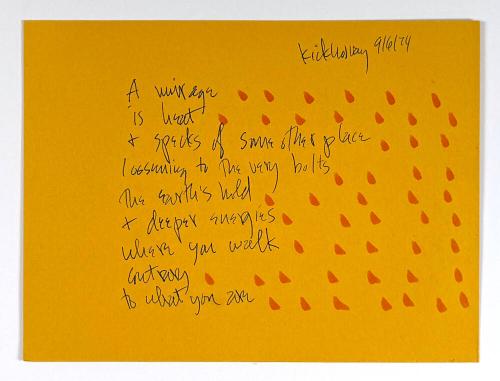 Kick Hollay 9/6/24
A mirage
is heat
+ specks of some other place
loosening to the very bolts
the earth's hold
+ deeper energies
where you walk
contrary
to what you are